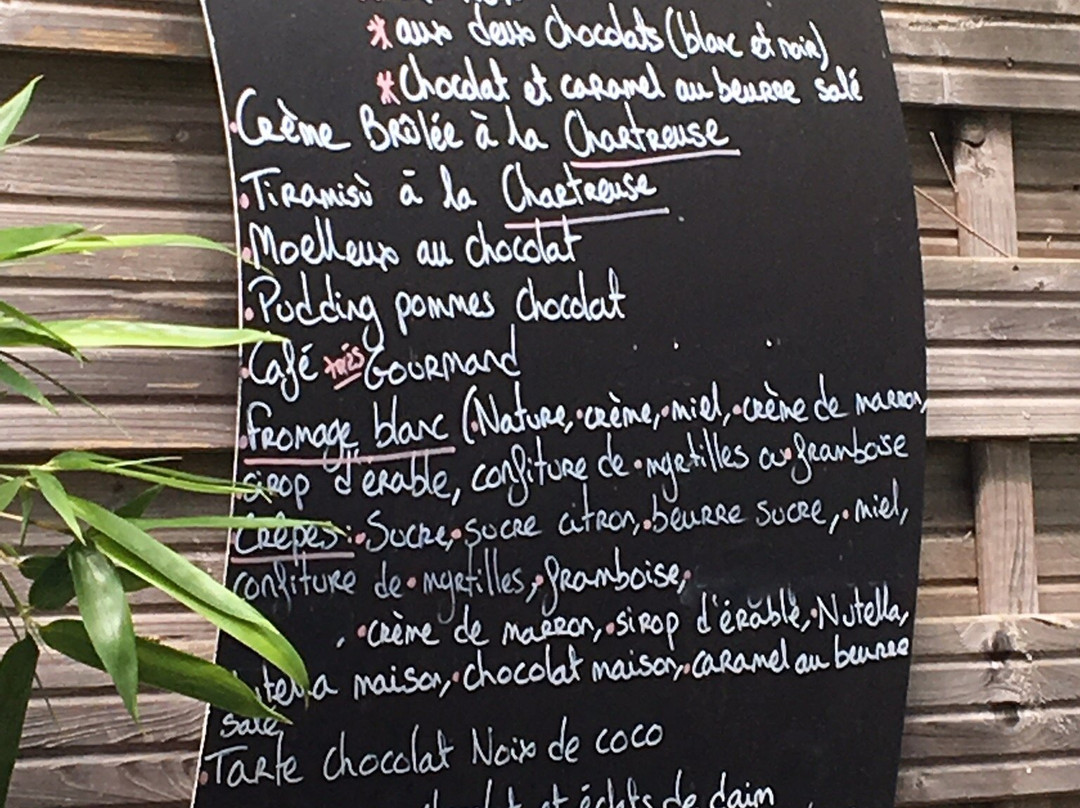 * aux deux chocolats (blanc et noir)
* Chocolat et caramel au beurre salé
•Crème Brûlée à la Chartreuse
•Tiramisù à la Chartreuse
•Moelleux au chocolat
•Pudding pommes chocolat
•Café très Gourmand
•fromage blanc (•Nature, •crème, •miel, •crème de marron,
•sirop d'érable, confiture de •myrtilles ou •framboise
•Crêpes : •Sucre, •sucre citron, •beurre sucre, •miel,
confiture de •myrtilles, •framboise,
, •crème de marron, •sirop d'érable, •Nutella,
maison, •chocolat maison, •caramel au beurre
salé,
•Tarte chocolat Noix de coco
et éclats de daim